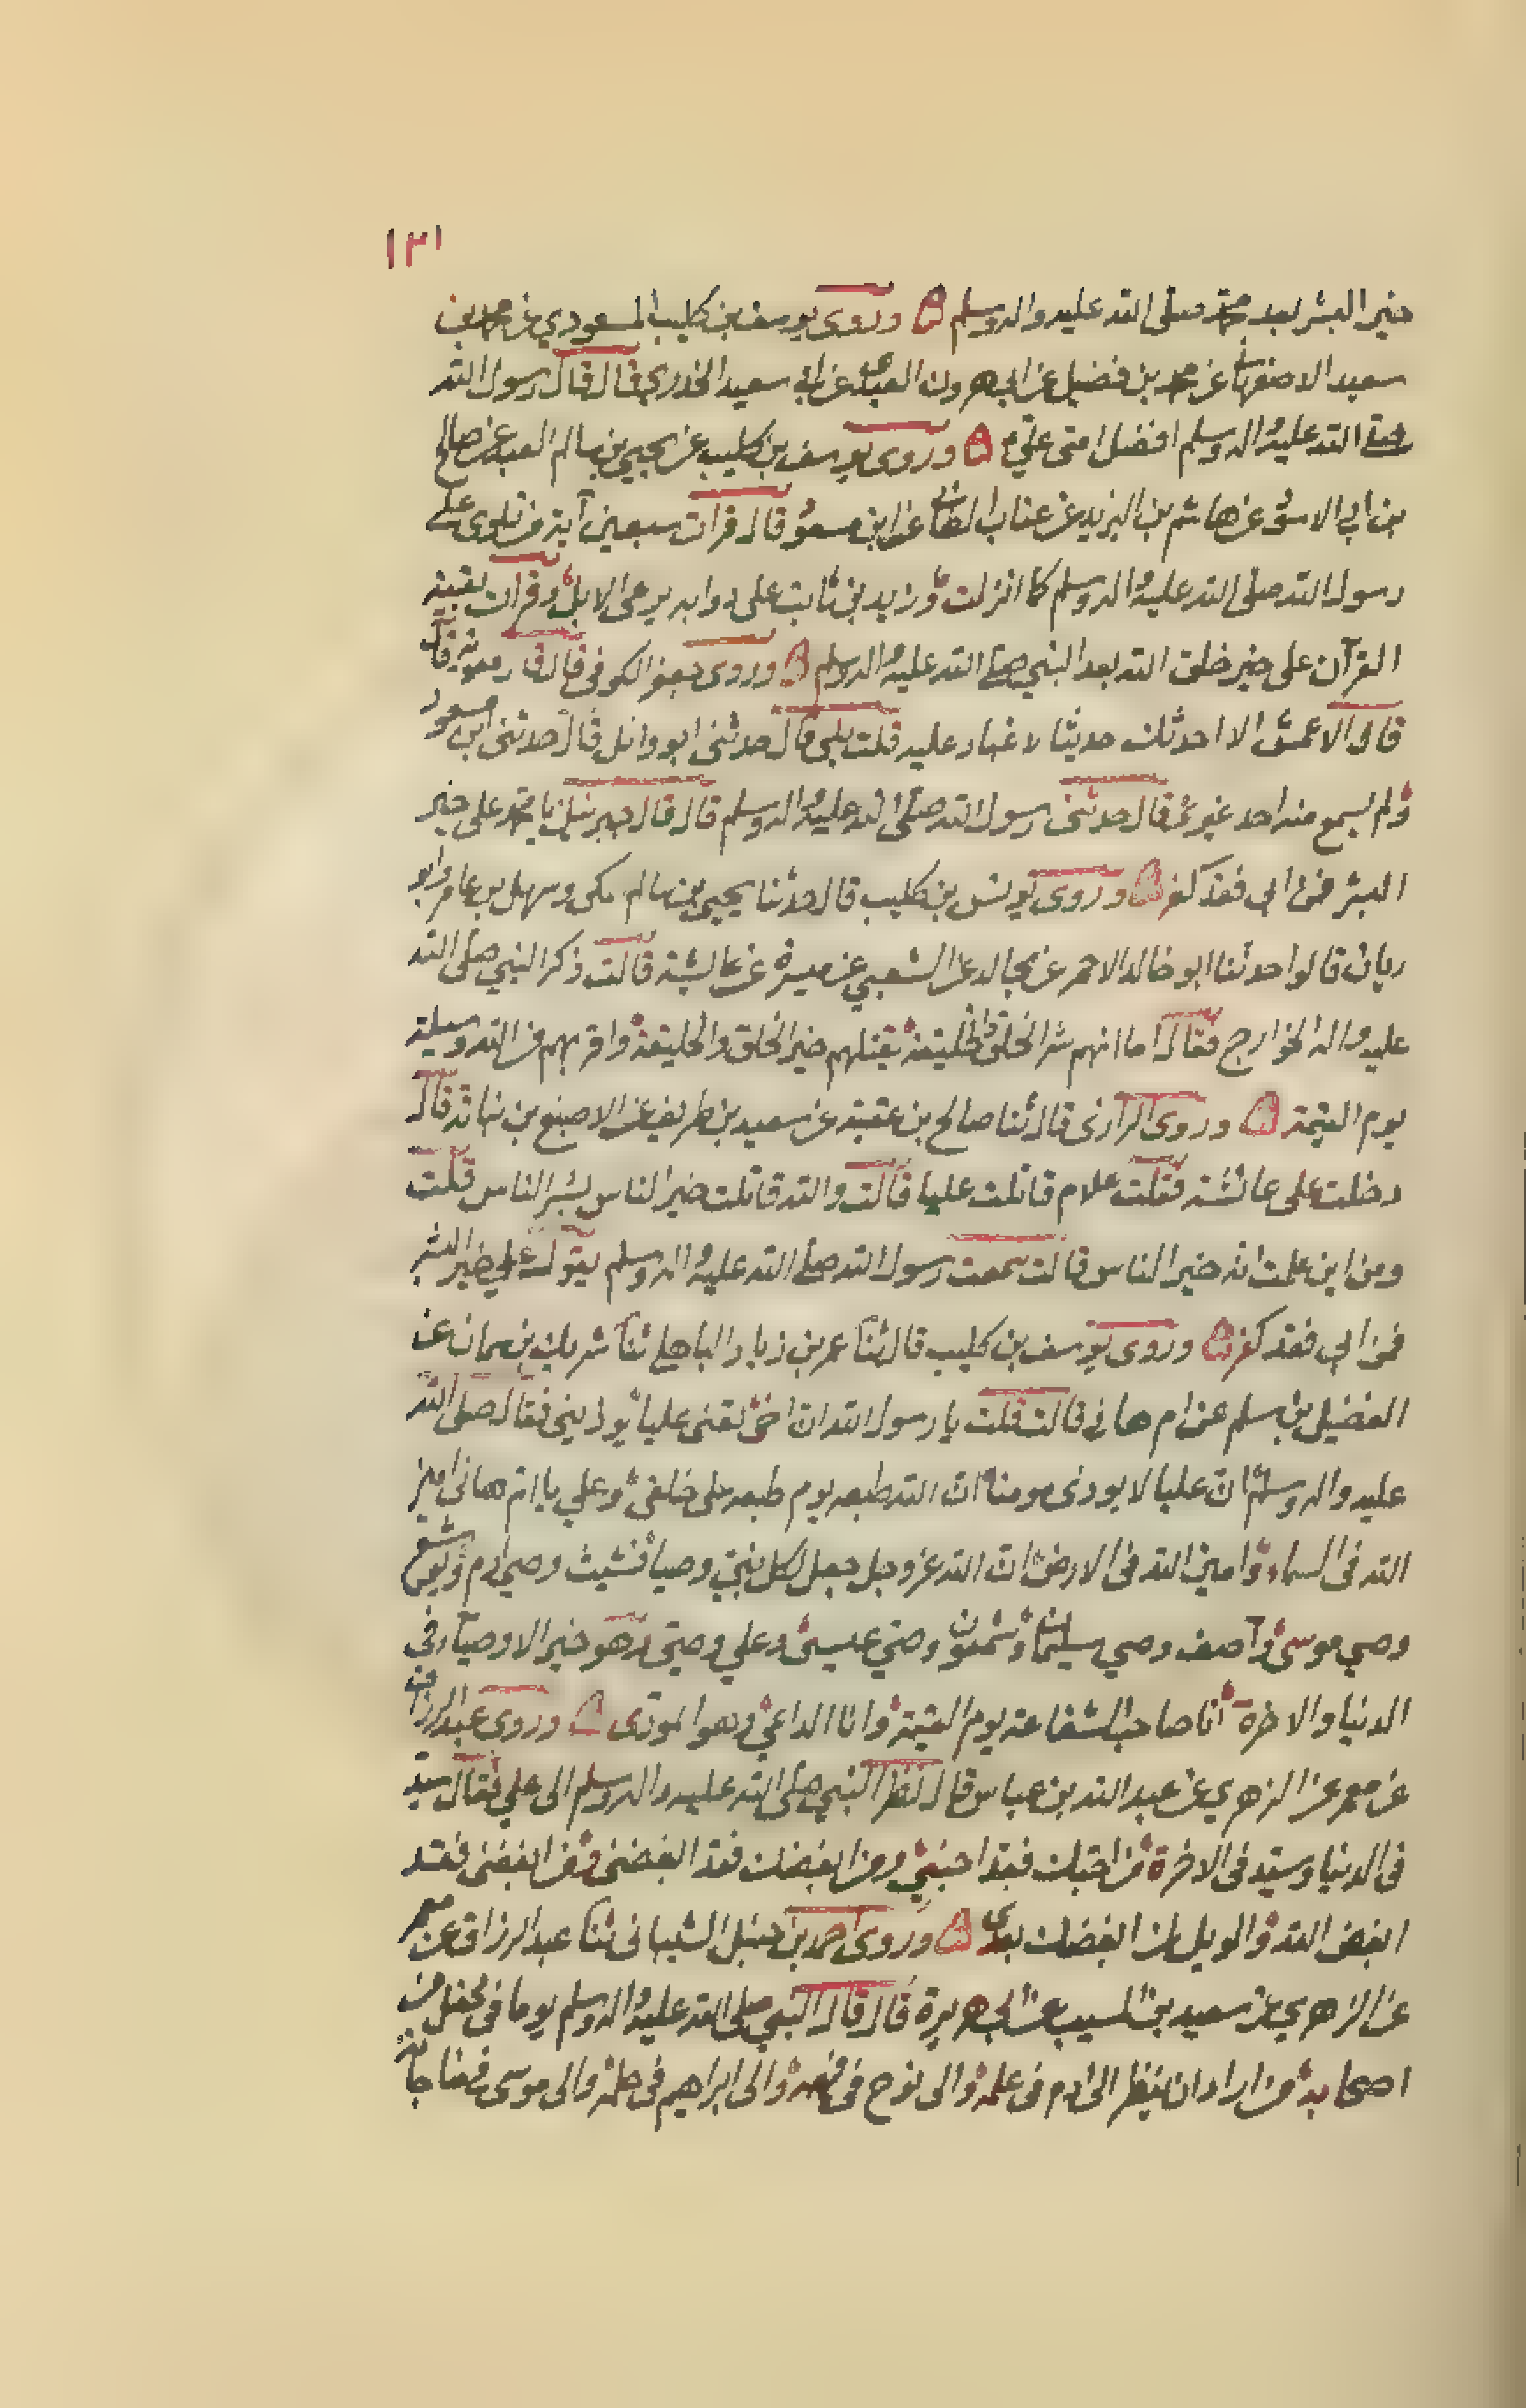 ١٣١
خير البشر بعد محمد صلى الله عليه واله وسلم ۵ وروى يوسف بن كليب المسعودي عن محمد بن
سعيد الاصفهاني عن محمد بن فضيل عن ابي هرون العبدي عن ابي سعيد الخدري قال قال رسول الله
صلى الله عليه واله وسلم افضل امتى علي ۵ وروى يوسف بن كليب عن يحيى بن سالم العبد عن صالح
بن ابي الاسود عن هاشم بن البريد عن عتاب عن ابن مسعود قال قرات سبعين آية من تلوى على
رسول الله صلى الله عليه واله وسلم كما انزلت و زيد بن ثابت على دوابه يرعى الابل وقرات بقية
القرآن على خير خلق الله بعد النبي صلى الله عليه واله وسلم ۵ وروى جعفر الكوفى قال
قال الاعمش الا احدثك حديثا لا غبار عليه قلت بلى قال حدثنى ابو وائل قال حدثنى ابن مسعود
ولم يسمع منه احد غيرى قال حدثنى رسول الله صلى الله عليه واله وسلم قال قال جبرئيل يا محمد على خير
البشر فمن ابى فقد كفر ۵ وروى يونس بن كليب قال حدثنا يحيى بن سالم مكى وسهل بن عامر وابو
ريان قالوا حدثنا ابو خالد الاحمر عن مجالد عن الشعبي عن ميسرة عن عائشة قالت ذكر النبي صلى الله
عليه واله الخوارج فقال اما انهم شر الخلق والخليقة يقتلهم خير الخلق والخليقة واقربهم من الله وسيلة
يوم القيمة ۵ وروى الرازى قال ثنا صالح بن عقبة عن سعيد بن طريف عن الاصبغ بن نباتة قال
دخلت على عائشة فقلت علام قاتلت عليا قالت والله قاتلت خير الناس بشر الناس قلت
ومن اين علمت انه خير الناس قالت سمعت رسول الله صلى الله عليه واله وسلم يقول علي خير البشر
فمن ابى فقد كفر ۵ وروى يوسف بن كليب قال ثنا عمر بن زياد الباهلي ثنا شريك بن سمان عن
الفضيل بن سلم عن ام هانى قالت قلت يا رسول الله ان اخى يعنى عليا يوذينى فقال صلى الله
عليه واله وسلم ان عليا لا يوذى مومنا ان الله طبعه يوم طبعه على خلقى وعلي يا ام هانى امين
الله فى السماء وامين الله فى الارض ان الله عز وجل جعل لكل نبي وصيا فشيث وصي ادم ويوشع
وصي موسى وآصف وصي سليمان وشمعون وصي عيسى وعلي وصيى وهو خير الاوصياء فى
الدنيا والاخرة انا صاحب الشفاعة يوم القيمة وانا الداعي وهو المودى ۵ وروى عبد الرزاق
عن معمر عن الزهري عن عبد الله بن عباس قال نظر النبي صلى الله عليه واله وسلم الى علي فقال سيد
فى الدنيا وسيد فى الاخرة من احبك فقد احبني ومن ابغضك فقد ابغضنى ومن ابغضنى فقد
ابغض الله والويل لمن ابغضك بعدى ۵ وروى احمد بن حنبل الشيبانى ثنا عبد الرزاق عن معمر
عن الزهري عن سعيد بن المسيب عن ابي هريرة قال قال النبي صلى الله عليه واله وسلم يوما فى محفل من
اصحابه من اراد ان ينظر الى ادم فى علمه والى نوح فى فهمه والى ابراهيم فى حلمه والى موسى فى مناجاته